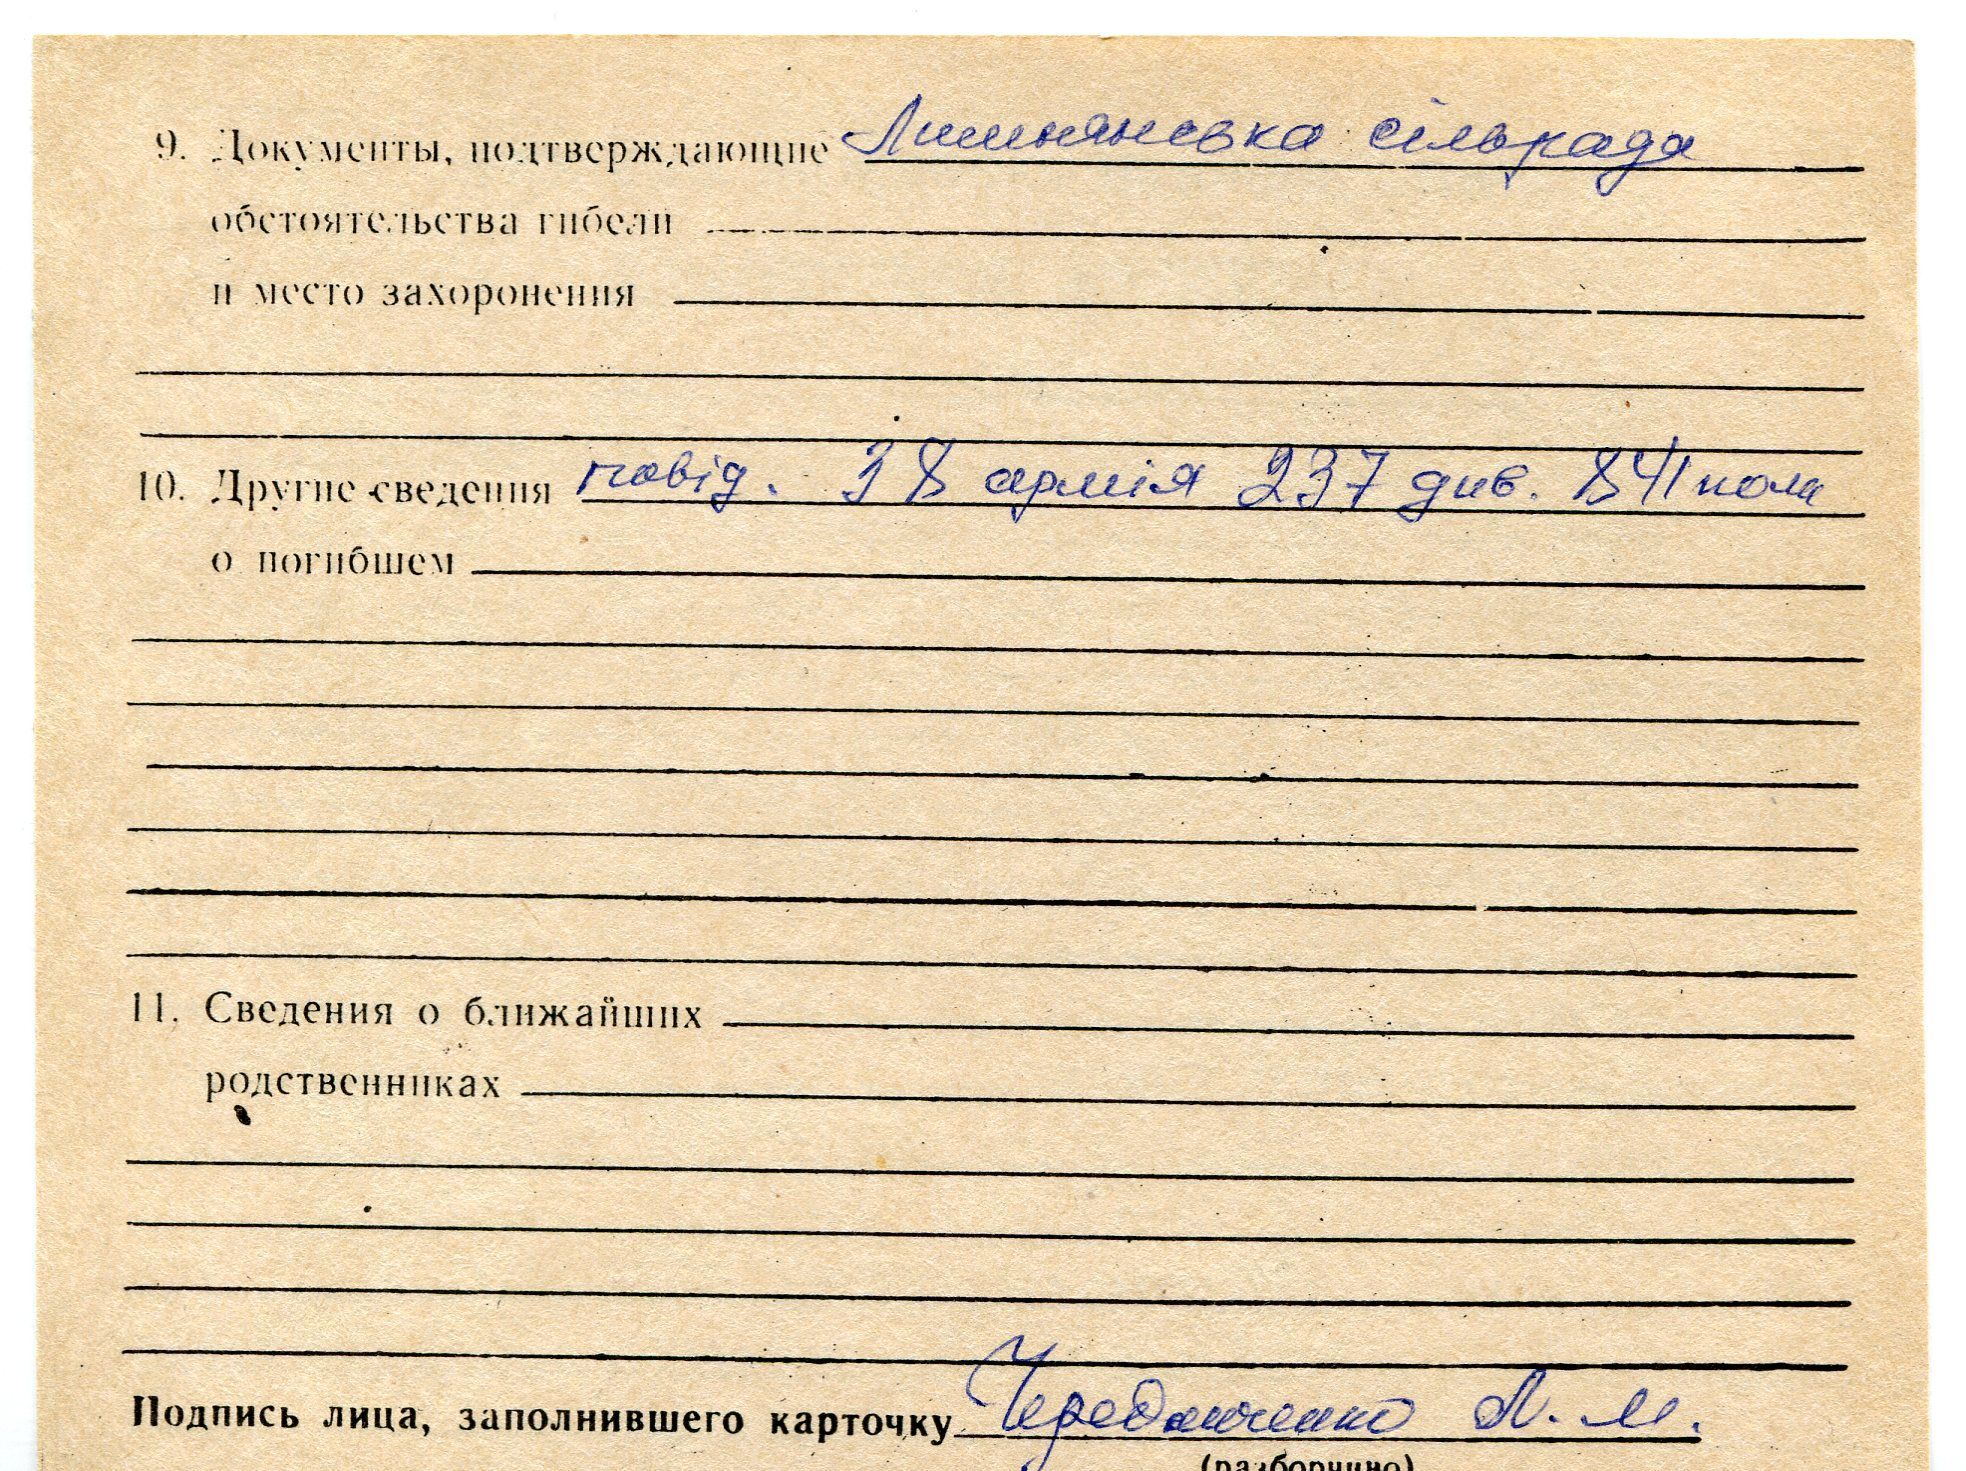 9. Документы, подтверждающие Лимнянська сільрада
обстоятельства гибели
и место захоронения
10. Другие сведения повід. 38 армія 237 див. 841 полк
о погибшем
11. Сведения о ближайших
родственниках
Подпись лица, заполнившего карточку Л. М.
(разборчиво)